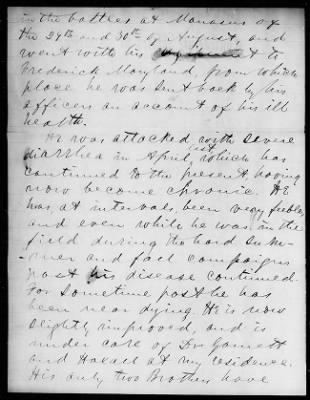 in the battles at Manasas of
the 29th and 30th of August, and
went with his to
Frederick Maryland, from which
place he was sent back by his
officers on account of his ill
health.
He was attacked with severe
diarrhea in April last, which has
continued to the present, having
now become chronic. He
has, at intervals, been very feeble,
and even while he was in the
field during the hard Sum-
mer and fall campaigns
past his disease continued.
For sometime past he has
been near dying. He is now
slightly improved, and is
under care of Drs Garnett
and Haxall at my residence.
His only two Brothers have